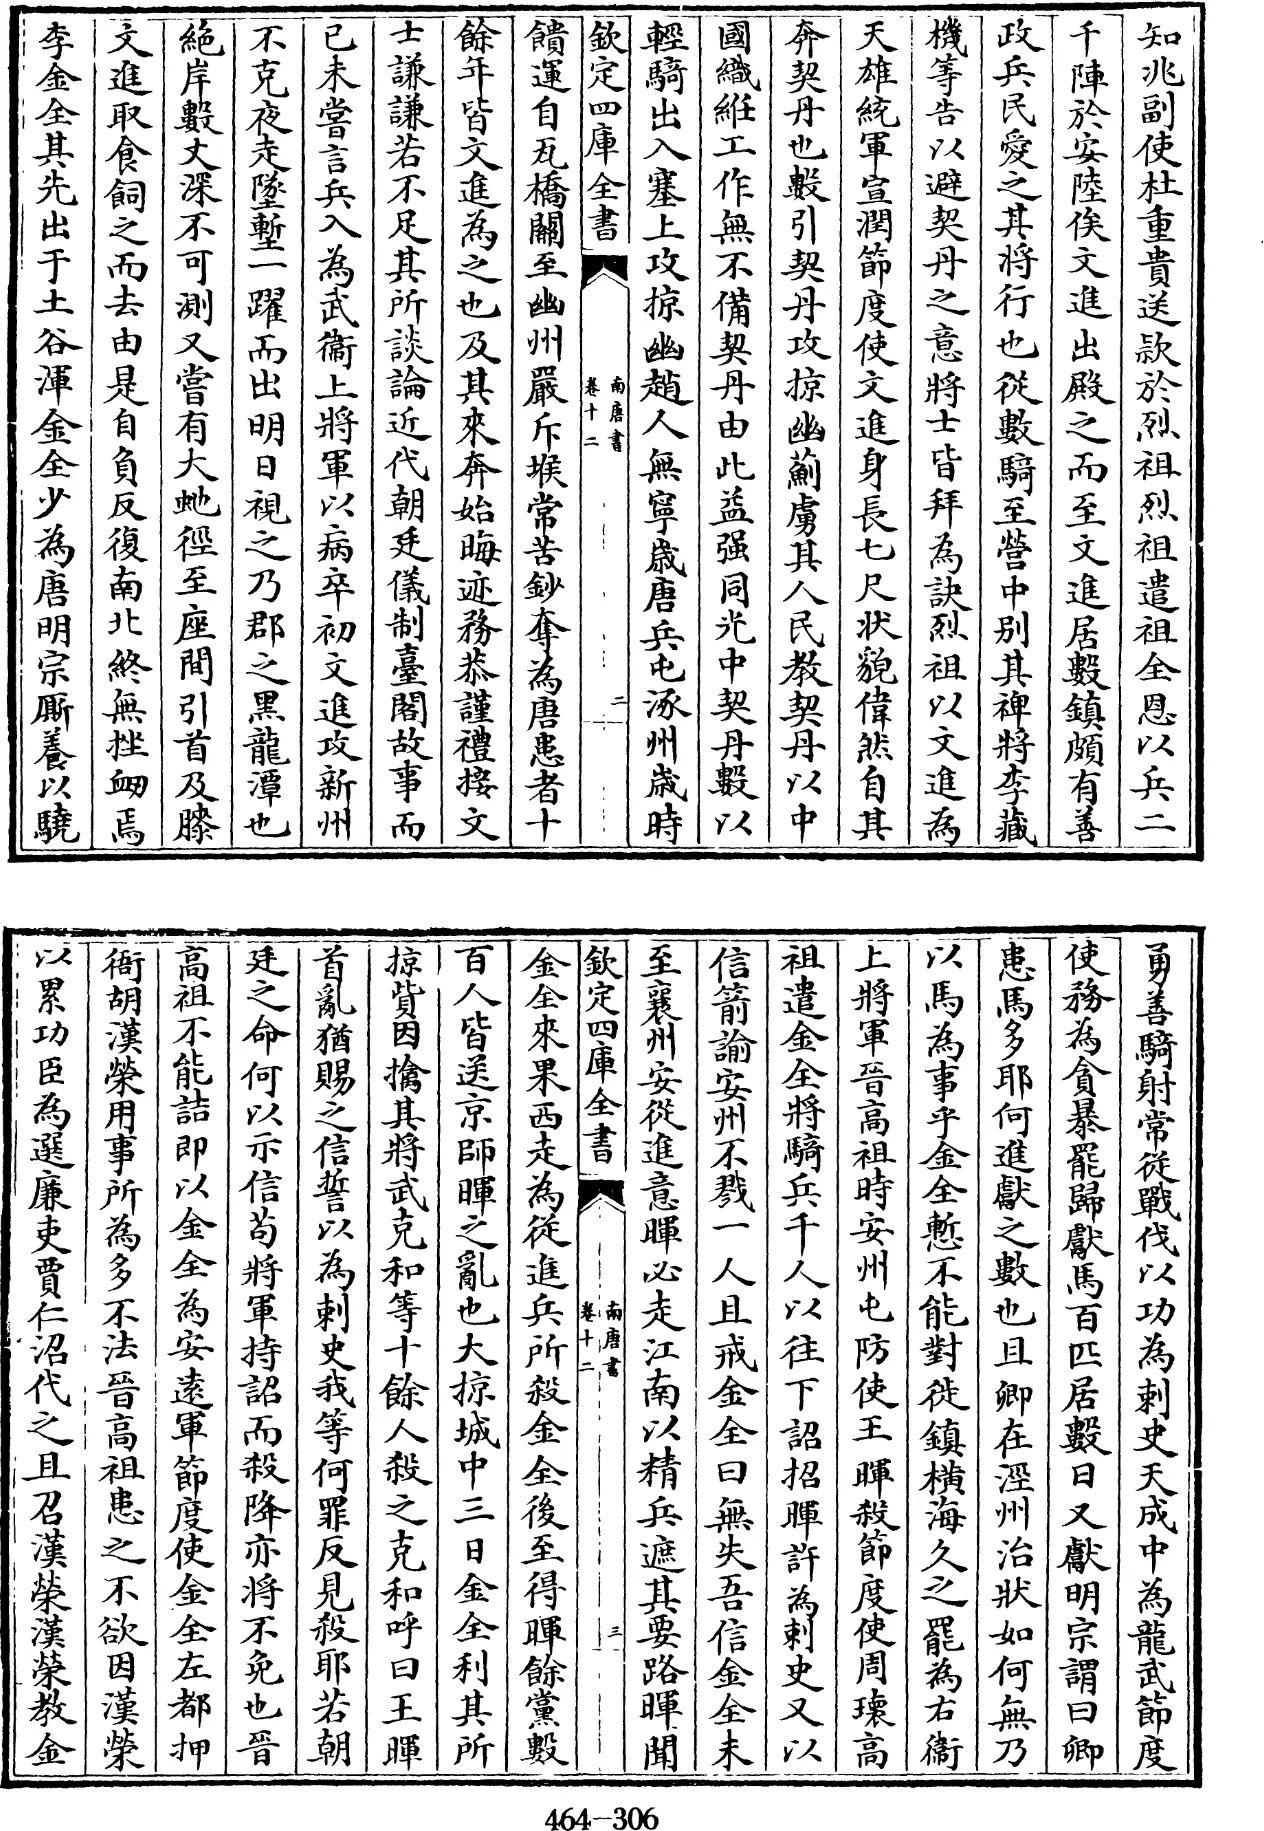 知兆副使杜重貴送款於烈祖烈祖遣祖全恩以兵二
千陣於安陸俟文進出殿之而至文進居數鎮頗有善
政兵民愛之其將行也從數騎至營中别其裨將李藏
機等告以避契丹之意將士皆拜為訣烈祖以文進為
天雄統軍宣潤節度使文進身長七尺狀貌偉然自其
奔契丹也數引契丹攻掠幽薊虜其人民教契丹以中
國織絍工作無不備契丹由此益强同光中契丹數以
輕騎出入塞上攻掠幽趙人無寧歲唐兵屯涿州歲時
欽定四庫全書
南唐書
卷十二
二
饋運自瓦橋關至幽州嚴斥堠常苦鈔奪為唐患者十
餘年皆文進為之也及其來奔始晦迹務恭謹禮接文
士謙謙若不足其所談論近代朝廷儀制臺閣故事而
已未嘗言兵入為武衞上將軍以病卒初文進攻新州
不克夜走墜塹一躍而出明日視之乃郡之黑龍潭也
絶岸數丈深不可測又嘗有大虵徑至座間引首及膝
文進取食飼之而去由是自負反復南北終無挫衂焉
李金全其先出于土谷渾金全少為唐明宗厮養以驍
勇善騎射常從戰伐以功為刺史天成中為龍武節度
使務為貪暴罷歸獻馬百匹居數日又獻明宗謂曰卿
患馬多耶何進獻之數也且卿在涇州治狀如何無乃
以馬為事乎金全慙不能對徙鎮横海久之罷為右衞
上將軍晉高祖時安州屯防使王暉殺節度使周瓌高
祖遣金全將騎兵千人以往下詔招暉許為刺史又以
信箭諭安州不戮一人且戒金全曰無失吾信金全未
至襄州安從進意暉必走江南以精兵遮其要路暉聞
欽定四庫全書
南唐書
卷十二
三
金全來果西走為從進兵所殺金全後至得暉餘黨數
百人皆送京師暉之亂也大掠城中三日金全利其所
掠貲因擒其將武克和等十餘人殺之克和呼曰王暉
首亂猶賜之信誓以為刺史我等何罪反見殺耶若朝
廷之命何以示信茍將軍持詔而殺降亦將不免也晉
高祖不能詰即以金全為安遠軍節度使金全左都押
衙胡漢榮用事所為多不法晉高祖患之不欲因漢榮
以累功臣為選廉吏賈仁沼代之且召漢榮漢榮教金
464-306